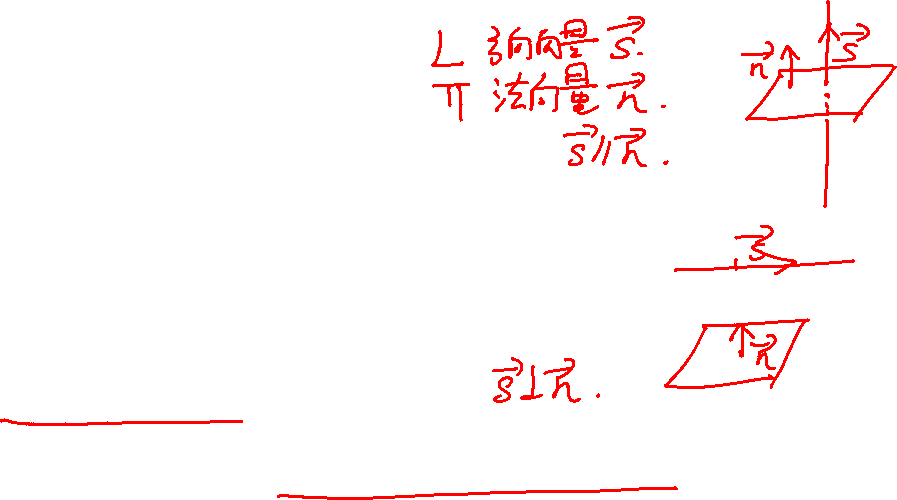 L 方向向量 s⃗.
π 法向量 n⃗.
s⃗∥n⃗.
n⃗ s⃗
s⃗
n⃗
s⃗⊥n⃗.